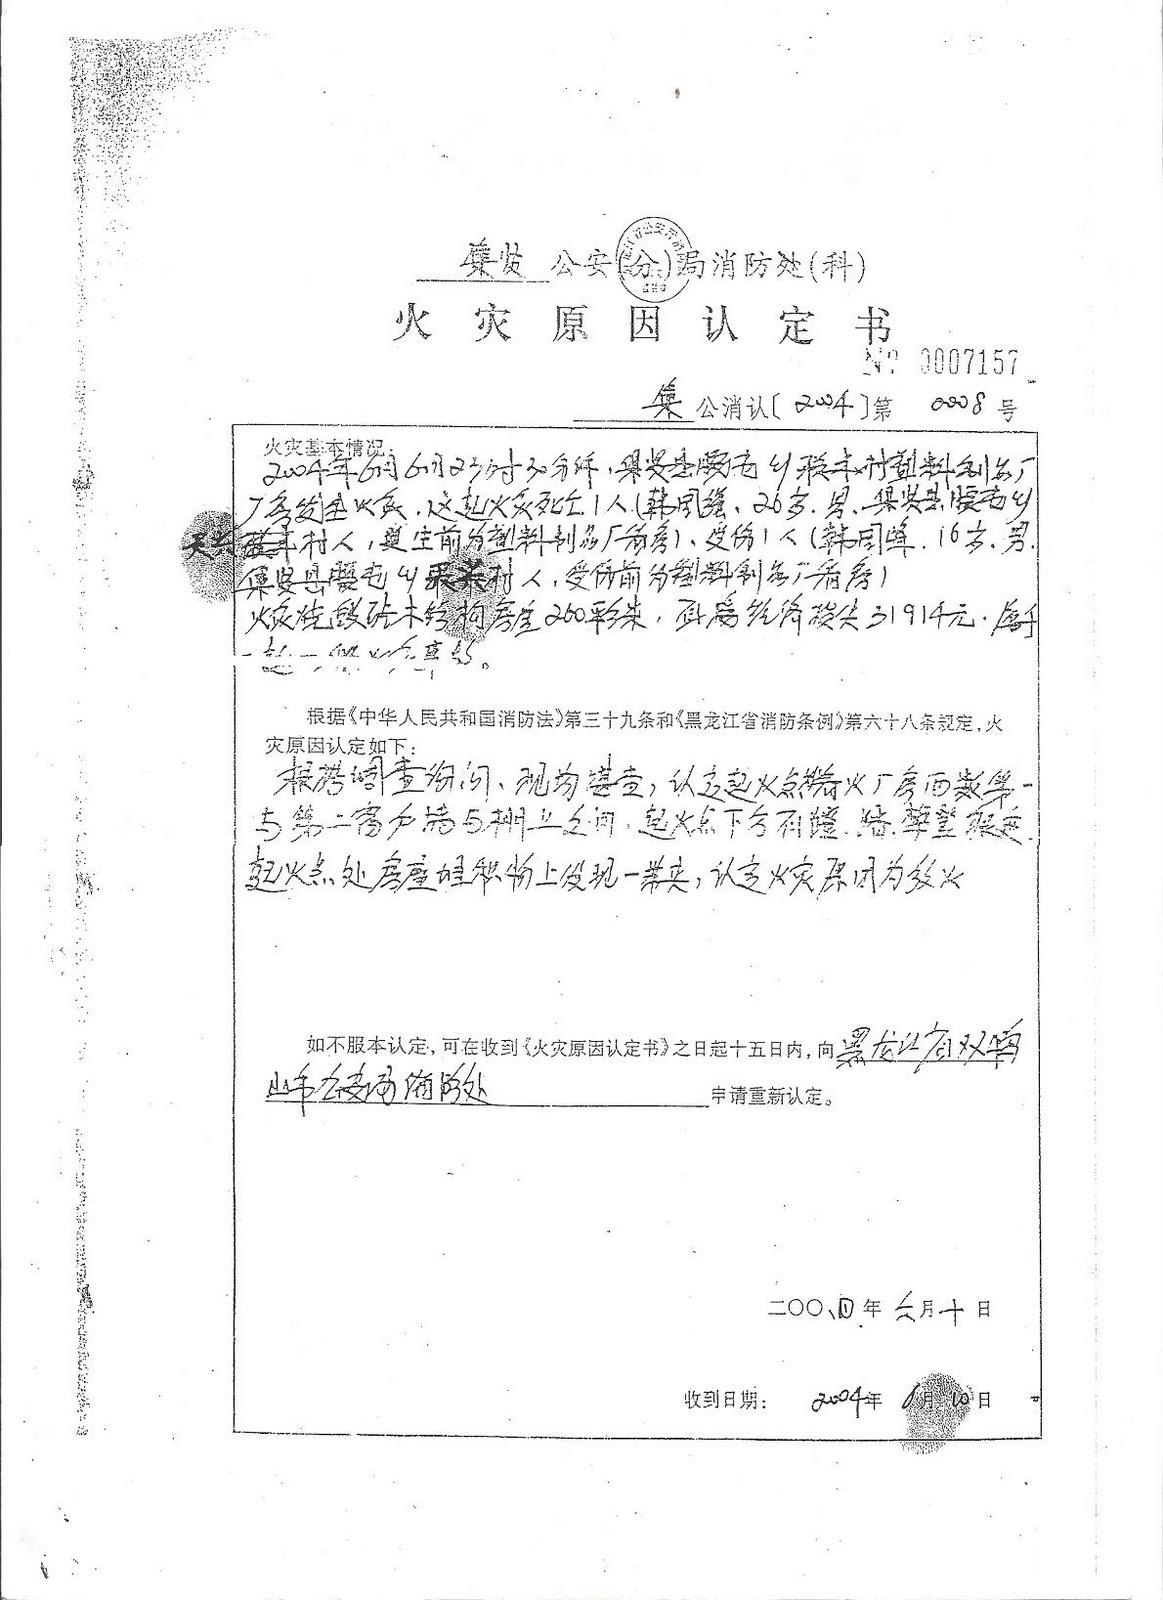 集贤 公安(分)局消防处(科)
火灾原因认定书
№ 0007157
集 公消认〔2004〕第 0008 号
火灾基本情况:
2004年6月6日23时30分许,集贤县腰屯乡联丰村塑料制品厂
厂房发生火灾,这起火灾死亡1人(韩国强、26岁、男、集贤县腰屯乡
天兴 联丰村人,其生前为塑料制品厂看房)、受伤1人(韩国峰、16岁、男、
集贤县腰屯乡 村人,受伤前为塑料制品厂看房)
火灾烧毁砖木结构房屋260平米,直接经济损失31914元,属于
一起一般火灾事故。
根据《中华人民共和国消防法》第三十九条和《黑龙江省消防条例》第六十八条规定,火
灾原因认定如下:
根据调查询问、现场勘查,认定起火点为 火厂房西数第一
与第二 间 墙与棚 之间,起火点下方有 墙
起火点处房屋堆积物上发现一 ,认定火灾原因为放火
如不服本认定,可在收到《火灾原因认定书》之日起十五日内,向黑龙江省双鸭
山市公安局消防处 申请重新认定。
二〇〇四年六月十日
收到日期: 2004年6月10日